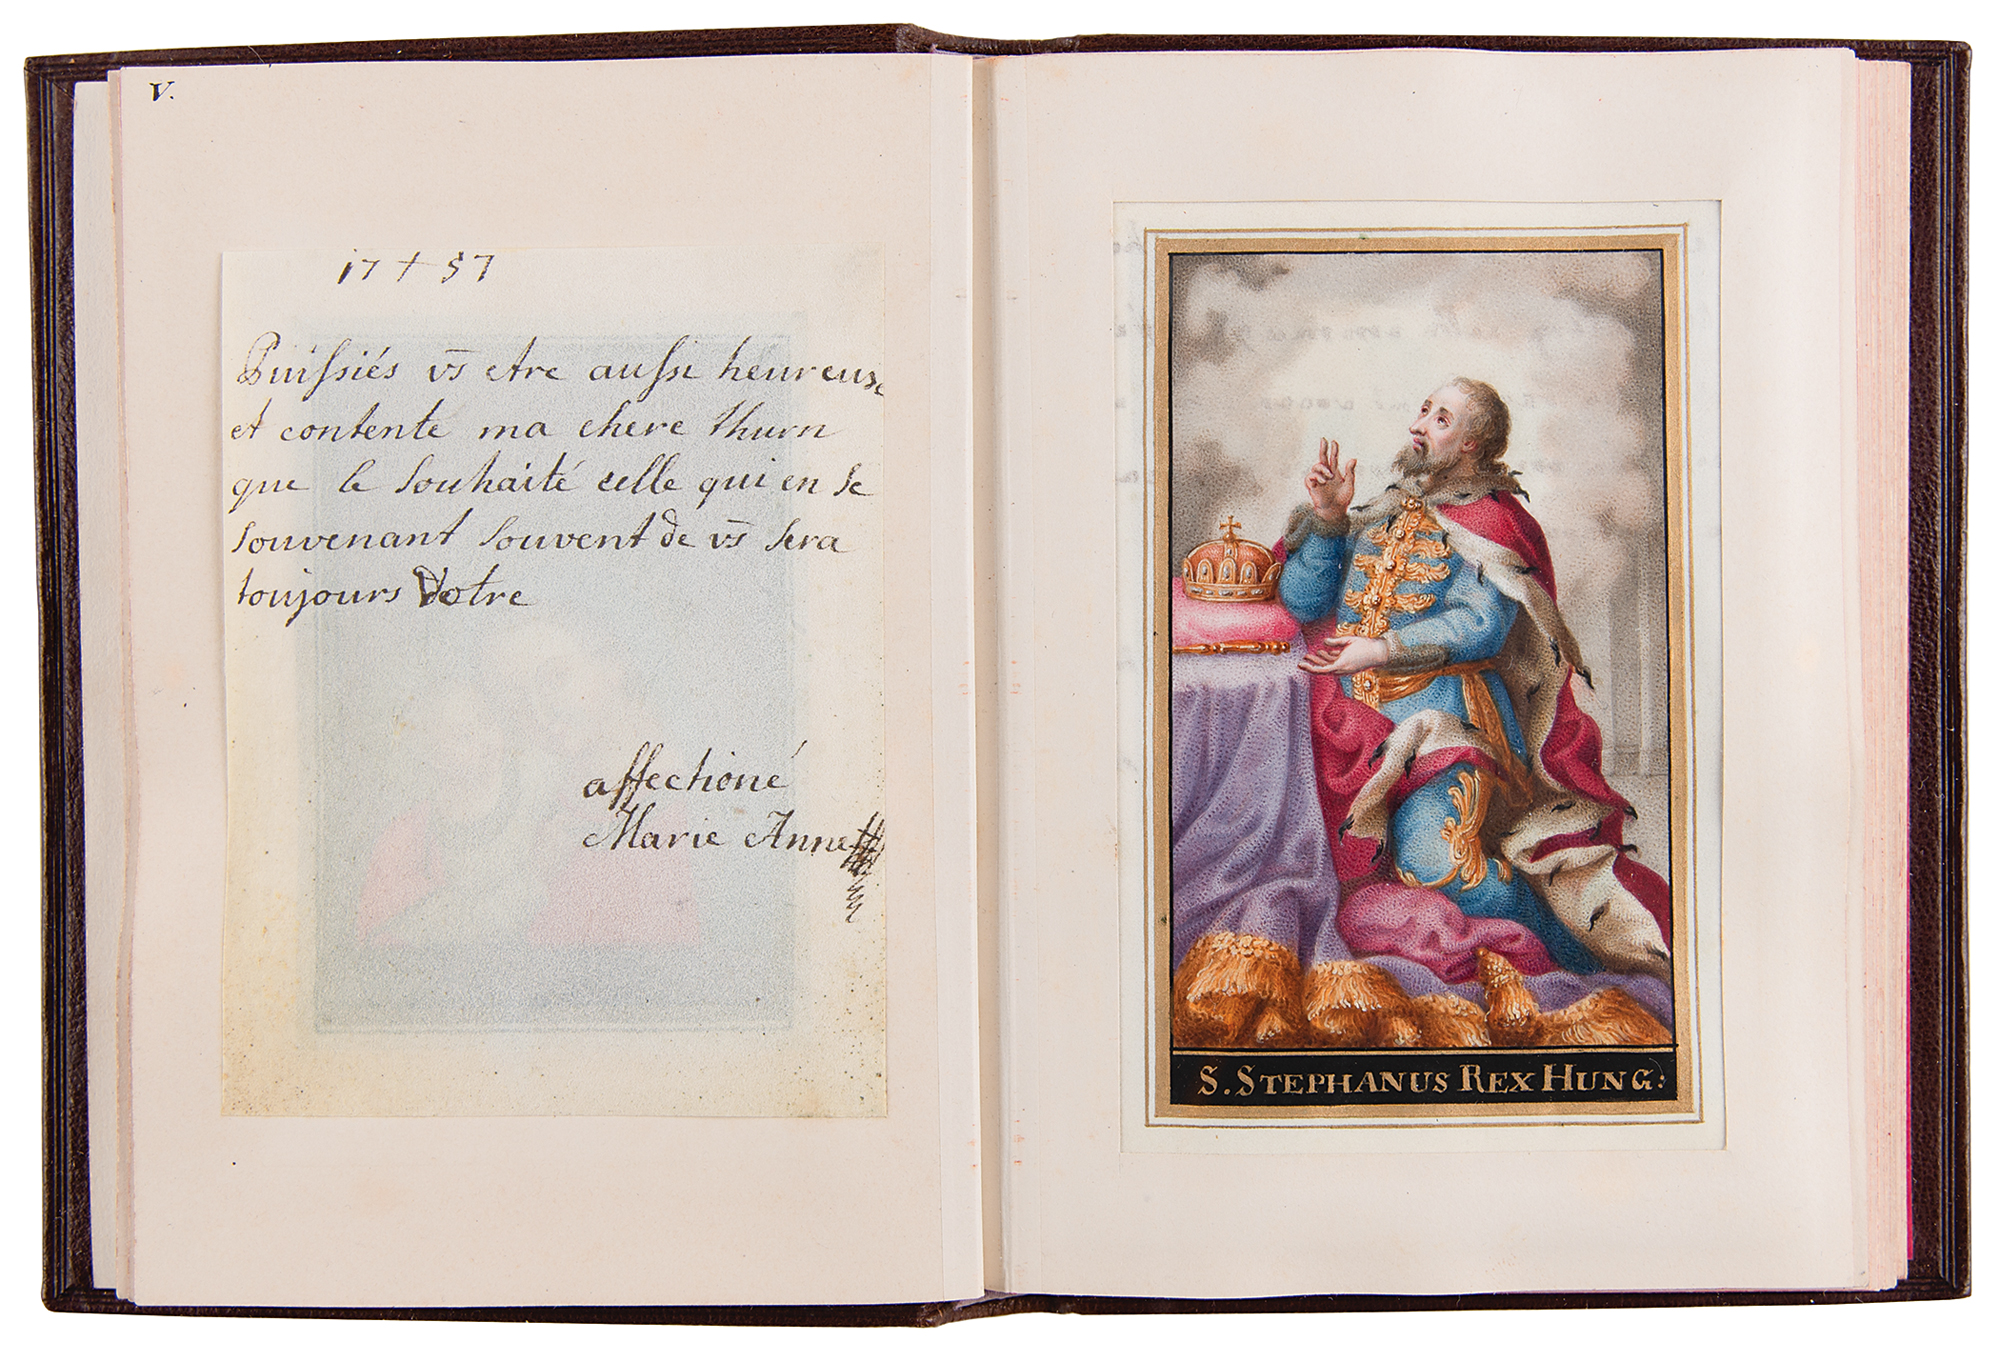 V.
17 + 57
Puissiés vs etre aussi heureuse
et contente ma chere Thurn
que le souhaité celle qui en se
souvenant souvent de vs sera
toujours Votre
affectioné
Marie Anne
S. STEPHANUS REX HUNG: